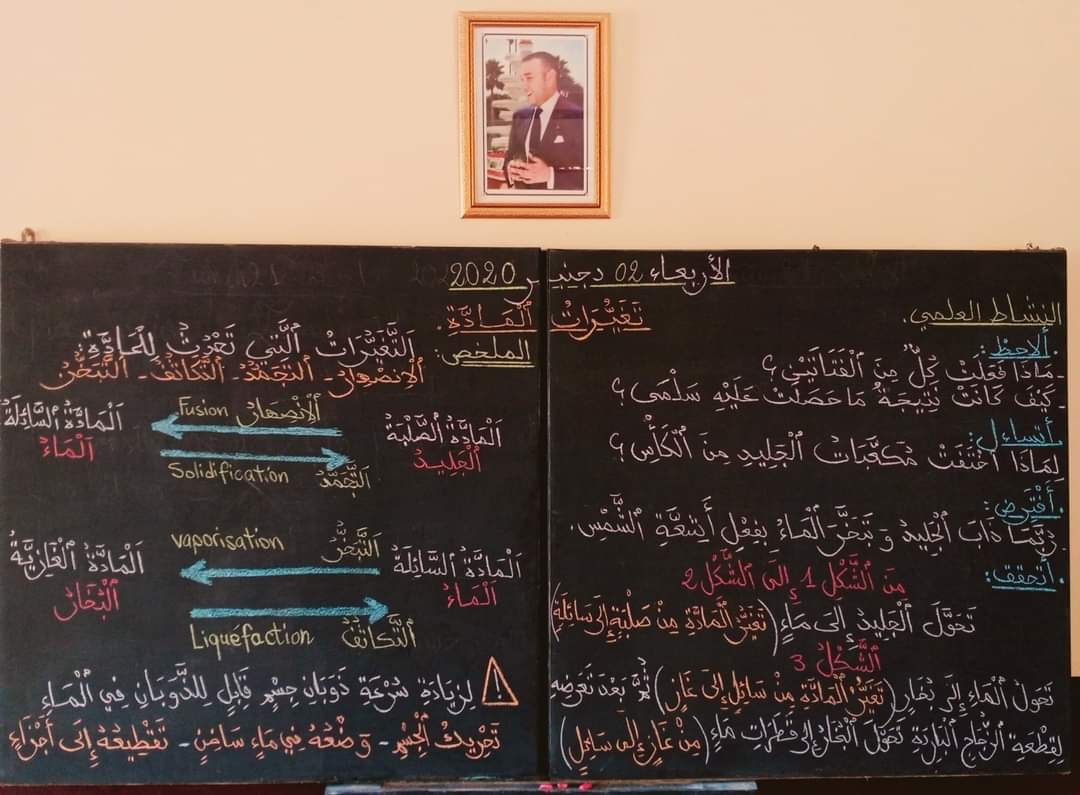 الأربعاء 02 دجنبـــر 2020
النشاط العلمي.
تَغَيُّرَاتُ اَلْمَادَّةِ.
ألاحظ:
- مَاذَا فَعَلَتْ كُلٌّ مِنَ اَلْفَتَاتَيْنِ؟
- كَيْفَ كَانَتْ نَتِيجَةُ مَا حَصَلَتْ عَلَيْهِ سَلْمَى؟
أتساءل:
لِمَاذَا اخْتَفَتْ مُكَعَّبَاتُ اَلْجَلِيدِ مِنَ اَلْكَأْسِ؟
أَفْتَرِض:
رُبَّمَا ذَابَ اَلْجَلِيدُ وَ تَبَخَّرَ اَلْمَاءُ بِفِعْلِ أَشِعَّةِ الشَّمْسِ.
أتحقق:
مِنَ الشَّكْلِ 1 إِلَى الشَّكْلِ 2
تَحَوَّلَ اَلْجَلِيدُ إِلَى مَاءٍ (تَغَيُّرُ اَلْمَادَّةِ مِنْ صَلْبَةٍ إِلَى سَائِلَةٍ)
الشَّكْلُ 3
تَحَوُّلُ اَلْمَاءِ إِلَى بُخَارٍ (تَغَيُّرُ اَلْمَادَّةِ مِنْ سَائِلٍ إِلَى غَازٍ) ثُمَّ بَعْدَ تَعَرُّضِهِ
لِقِطْعَةِ اَلزُّجَاجِ اَلْبَارِدَةِ تَحَوَّلَ اَلْبُخَارُ إِلَى قَطَرَاتِ مَاءٍ (مِنْ غَازٍ إِلَى سَائِلٍ)
الملخص:
اَلتَّغَيُّرَاتُ اَلَّتِي تَحْدُثُ لِلْمَادَّةِ:
اَلْاِنْصِهَارُ - اَلتَّجَمُّدُ - اَلتَّكَاثُفُ - اَلتَّبَخُّرُ
اَلْمَادَّةُ الصَّلْبَةُ
اَلْجَلِيدُ
Fusion اَلْاِنْصِهَارُ
Solidification اَلتَّجَمُّدُ
اَلْمَادَّةُ السَّائِلَةُ
اَلْمَاءُ
اَلْمَادَّةُ السَّائِلَةُ
اَلْمَاءُ
vaporisation اَلتَّبَخُّرُ
Liquéfaction اَلتَّكَاثُفُ
اَلْمَادَّةُ اَلْغَازِيَّةُ
اَلْبُخَارُ
لِزِيَادَةِ سُرْعَةِ ذَوَبَانِ جِسْمٍ قَابِلٍ لِلذَّوَبَانِ فِي اَلْمَاءِ
تَحْرِيكُ اَلْجِسْمِ - وَضْعُهُ فِي مَاءٍ سَاخِنٍ - تَقْطِيعُهُ إِلَى أَجْزَاءٍ